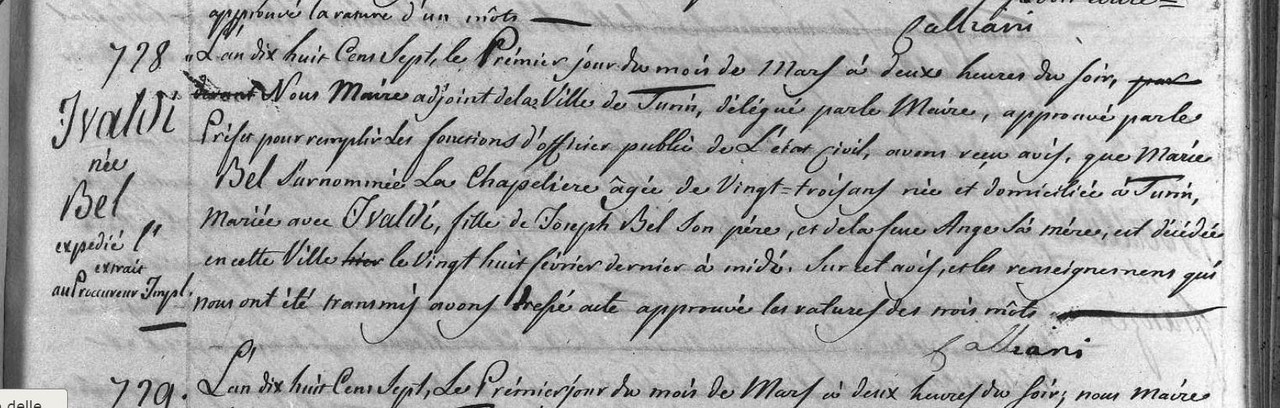 approuvé la rature d'un môts
Calliani
728
Ivaldi
née
Bel
expedié l'
extrait
au Procureur Impl.
L'an dix huit Cens Sept, le Prémier jour du mois de Mars à deux heures du soir, par
devant Nous Maire adjoint de la Ville de Turin, délégué par le Maire, approuvé par le
Préfet pour remplir les fonctions d'officier public de L'état Civil, avons reçu avis, que Marie
Bel Surnommée La Chapeliere âgée de Vingt=trois ans née et domiciliée à Turin,
Mariée avec Ivaldi, fille de Joseph Bel son père, et de la feue Ange sa mére, est décédée
en cette Ville hier le Vingt huit février dernier à midi. Sur cet avis, et les renseignemens qui
nous ont été transmis avons dressé acte approuvée les ratures des trois môts
Calliani
729.
L'an dix huit Cens Sept, Le Prémier jour du mois de Mars à deux heures du soir; nous Maire
delle